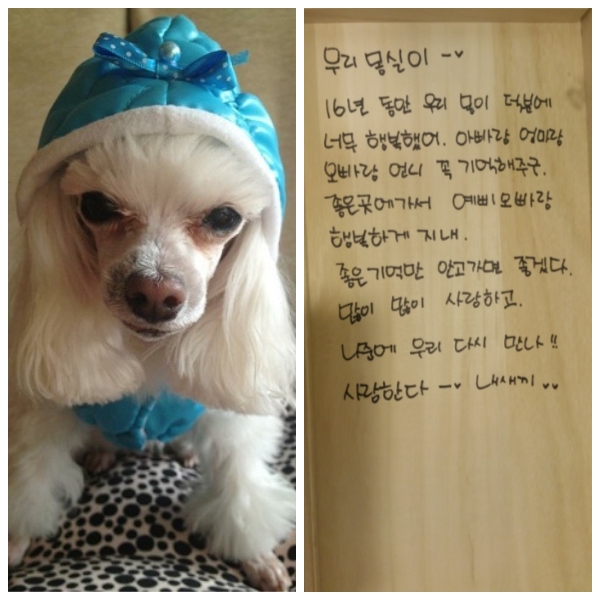 우리 몽실이 -♥
16년 동안 우리 몽이 더붙에
너무 행복했어. 아빠랑 엄마랑
오빠랑 언니 꼭 기억해주구.
좋은곳에가서 예삐오빠랑
행복하게 지내.
좋은기억만 안고가면 좋겠다.
많이 많이 사랑하고.
나중에 우리 다시 만나!!
사랑한다 -♥ 내새끼 ♥♥